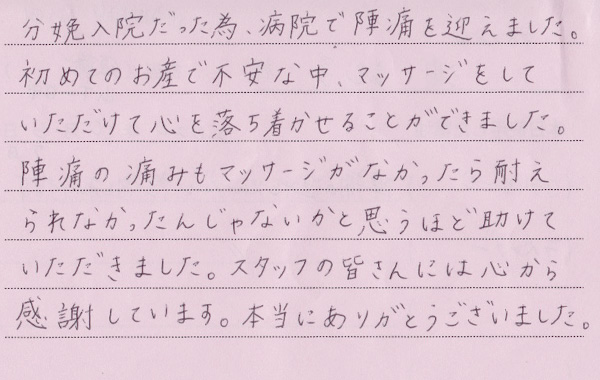 分娩入院だった為、病院で陣痛を迎えました。
初めてのお産で不安な中、マッサージをして
いただけて心を落ち着かせることができました。
陣痛の痛みもマッサージがなかったら耐え
られなかったんじゃないかと思うほど助けて
いただきました。スタッフの皆さんには心から
感謝しています。本当にありがとうございました。